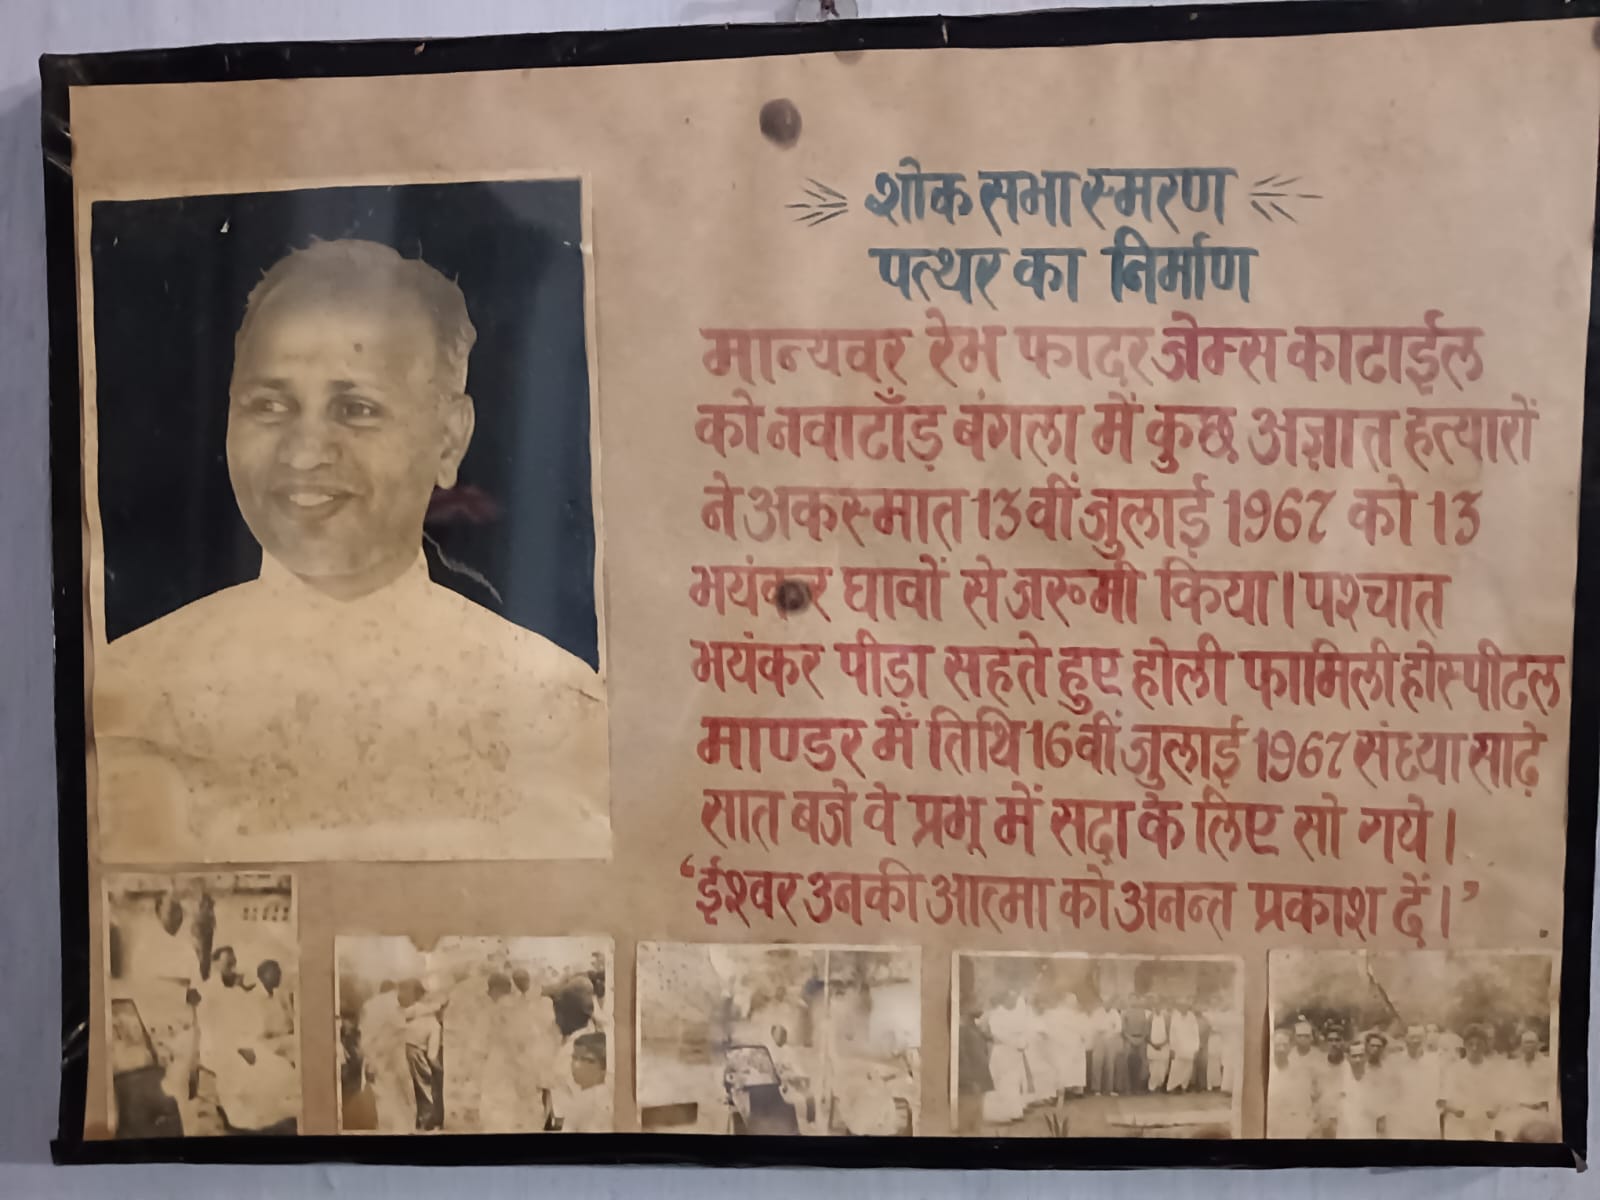 शोक सभा स्मरण
पत्थर का निर्माण
मान्यवर रेभ फादर जेम्स काटाईल
को नवाटाँड़ बंगला में कुछ अज्ञात हत्यारों
ने अकस्मात 13वीं जुलाई 1967 को 13
भयंकर घावों से जख्मी किया। पश्चात
भयंकर पीड़ा सहते हुए होली फामिली होस्पीटल
माण्डर में तिथि 16वीं जुलाई 1967 संध्या साढ़े
सात बजे वे प्रभू में सदा के लिए सो गये।
‘ईश्वर उनकी आत्मा को अनन्त प्रकाश दें।’